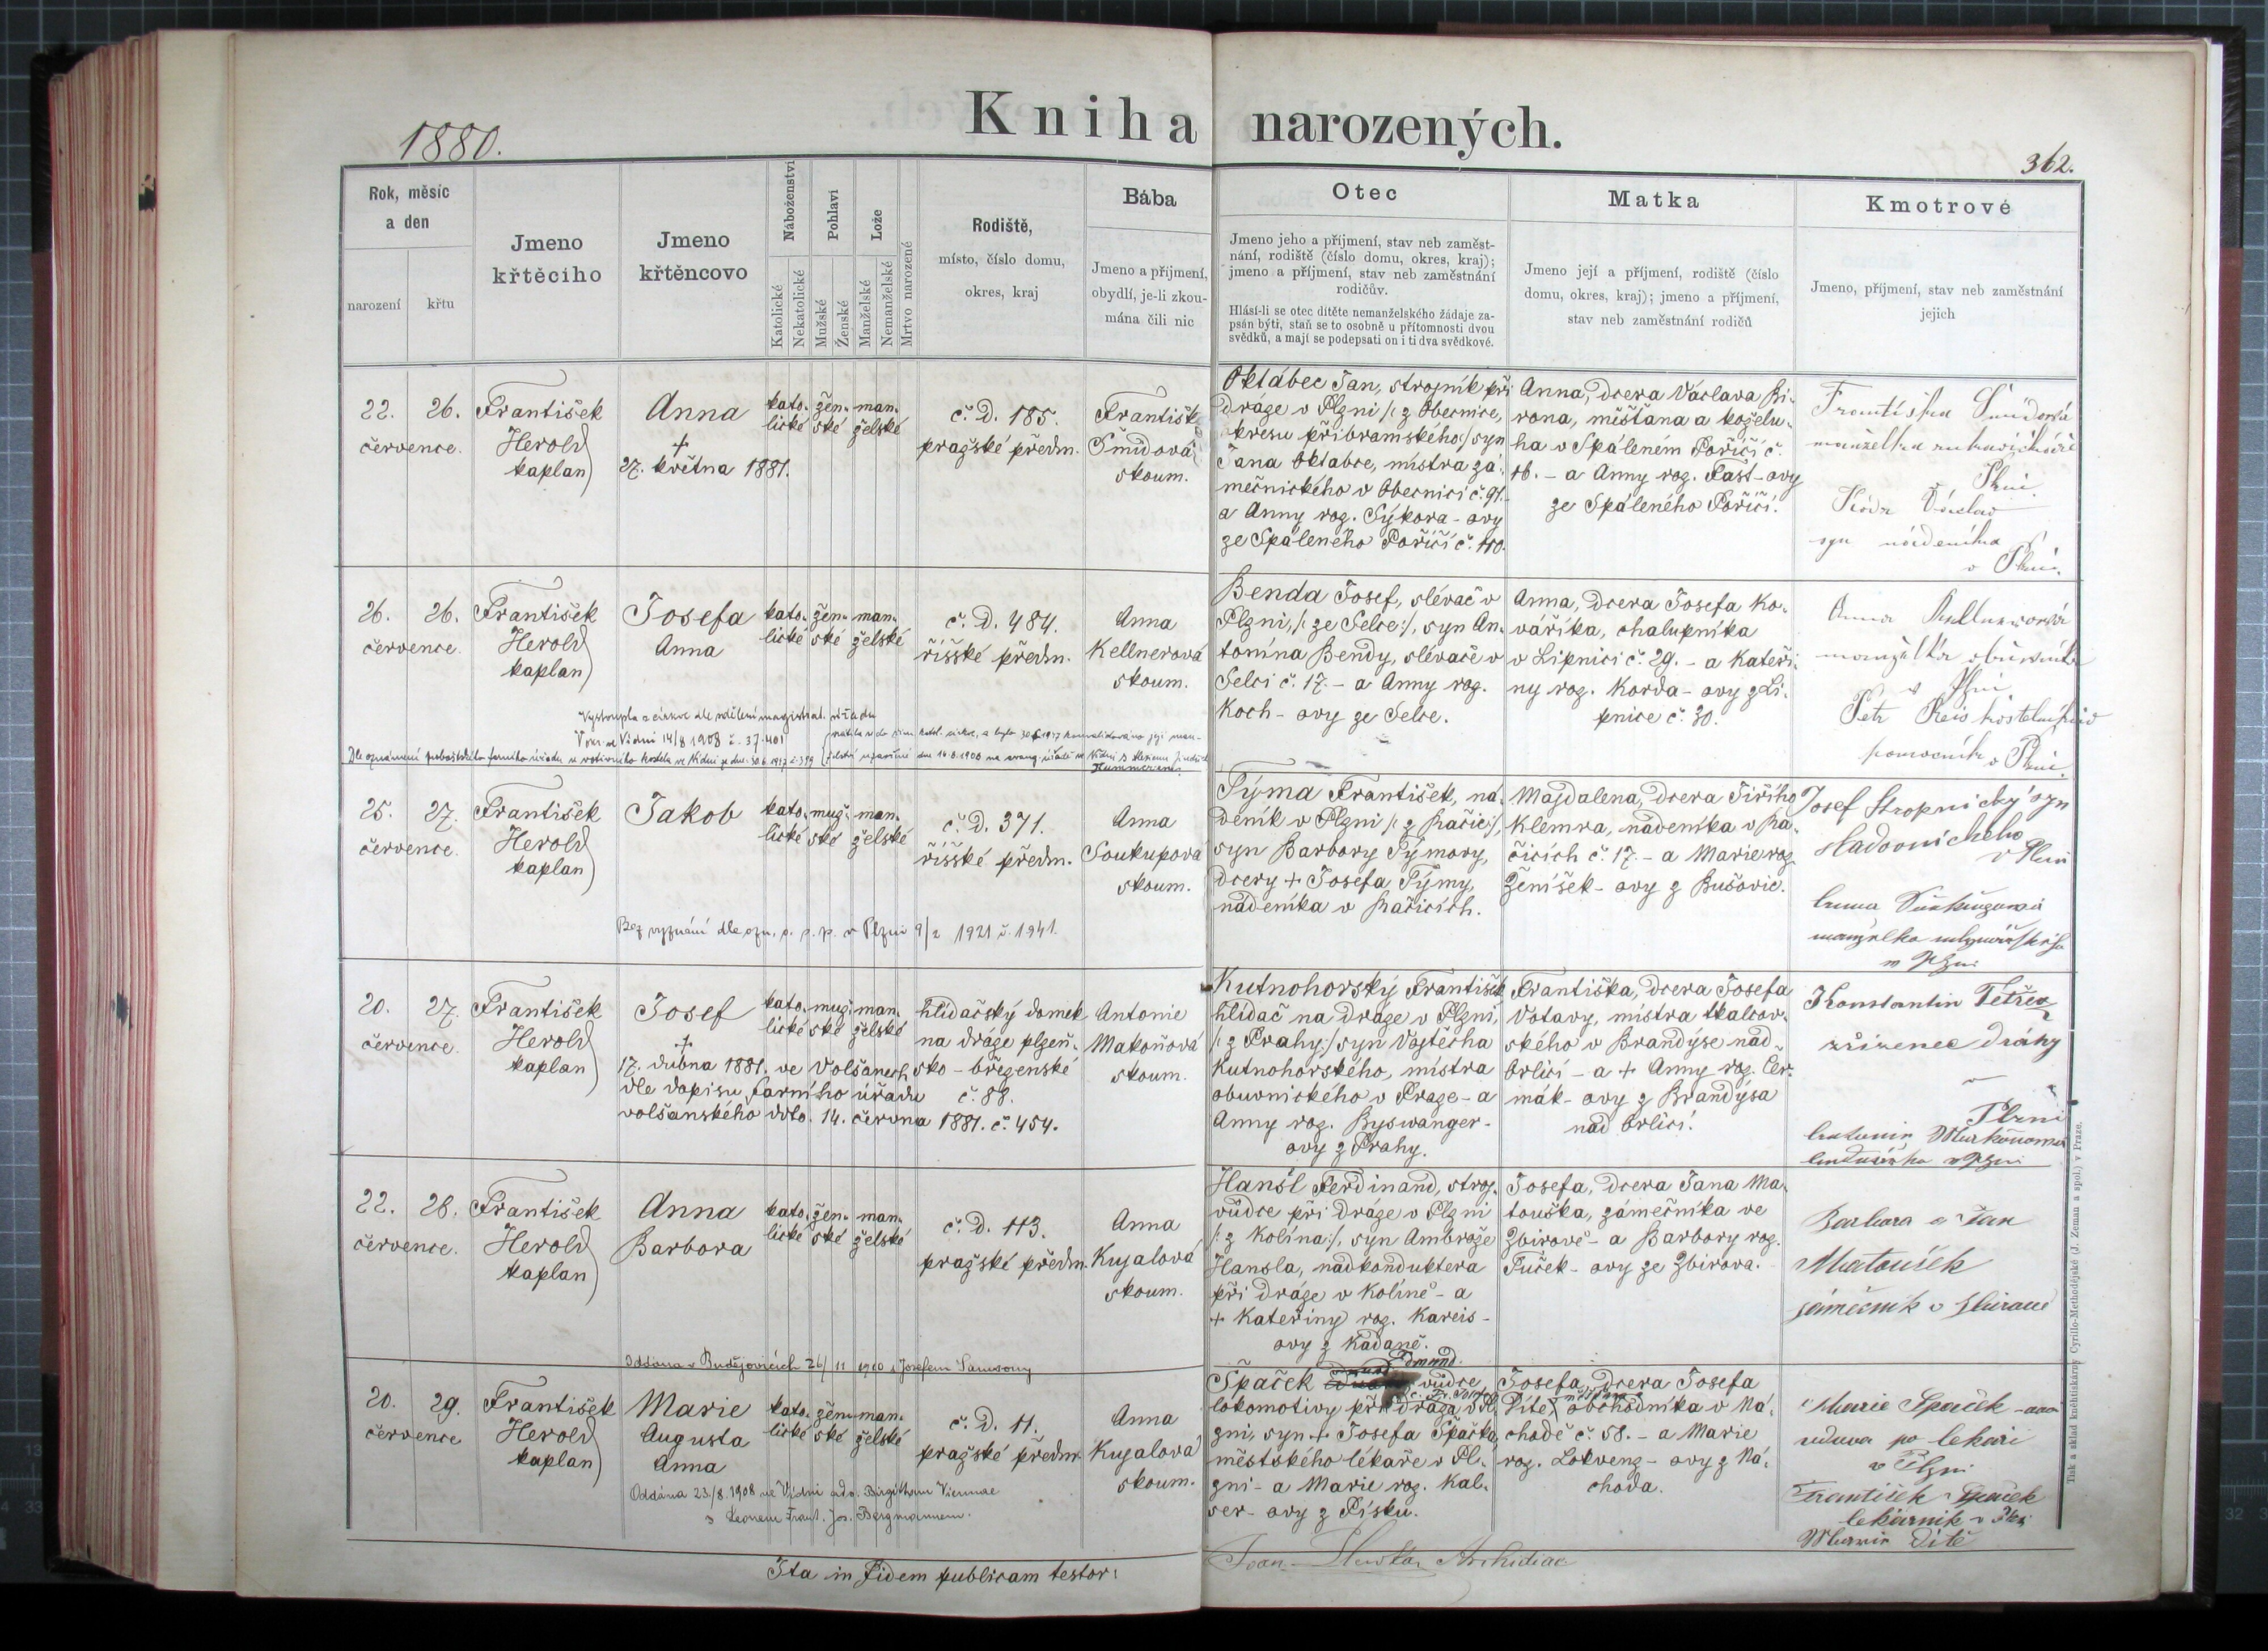 1880.
Kniha narozených.
362.
Rok, měsíc
a den
narození
křtu
Jmeno
křtěcího
Jmeno
křtěncovo
Náboženství
Katolické
Nekatolické
Pohlaví
Mužské
Ženské
Lože
Manželské
Nemanželské
Mrtvo narozené
Rodiště,
místo, číslo domu,
okres, kraj
Bába
Jmeno a příjmení,
obydlí, je-li zkou-
mána čili nic
Otec
Jmeno jeho a příjmení, stav neb zaměst-
nání, rodiště (číslo domu, okres, kraj);
jmeno a příjmení, stav neb zaměstnání
rodičův.
Hlásí-li se otec dítěte nemanželského žádaje za-
psán býti, staň se to osobně u přítomnosti dvou
svědků, a mají se podepsati on i ti dva svědkové.
Matka
Jmeno její a příjmení, rodiště (číslo
domu, okres, kraj); jmeno a příjmení,
stav neb zaměstnání rodičů
Kmotrové
Jmeno, příjmení, stav neb zaměstnání
jejich
22. 26.
července.
František
Herold
kaplan
Anna
+
27. května 1881.
kato- žen- man-
lické ské želské
č. D. 185.
pražské předm.
Františk
Šmídová
skoum.
Oktábec Jan, strojník při
dráze v Plzni /: z Obecnice,
okresu příbramského:/ syn
Jana Oktabce, mistra zá-
mečnického v Obecnici č. 91.-
a Anny roz. Sýkora-ovy
ze Spáleného Poříčí č. 110.
Anna, dcera Václava Bi-
rona, měšťana a koželu-
ha v Spáleném Poříčí č.
16. - a Anny roz. Fast-ovy
ze Spáleného Poříčí.
Františka Šmídová
manželka
v Plzni.
Václav
syn nádeníka
v Plzni.
26. 26.
července.
František
Herold
kaplan
Josefa
Anna
kato- žen- man-
lické ské želské
č. D. 484.
říšské předm.
Anna
Kellnerová
skoum.
Benda Josef, slévač v
Plzni, /: ze Selce:/, syn An-
tonína Bendy, slévače v
Selci č. 17. - a Anny roz.
Koch-ovy ze Selce.
Anna, dcera Josefa Ko-
váříka, chalupníka
v Lipnici č. 29. - a Kateři-
ny roz. Korda-ovy z Li-
pnice č. 30.
Anna Kellnerová
manželka obuvníka
v Plzni
Petr Reis kostelnický
pomocník v Plzni
Vystoupla z církve dle sdělení magistrat. úřadu
ve Vídni 14/8 1908 č. 37.401
Dle oznámení farního úřadu u votivního kostela ve Vídni ze dne 30.6.1917 č. 399
25. 27.
července.
František
Herold
kaplan
Jakob
kato- muž- man-
lické ské želské
č. D. 371.
říšské předm.
Anna
Soukupová
skoum.
Týma František, ná-
deník v Plzni /: z Račic:/,
syn Barbory Týmovy,
dcery + Josefa Týmy,
nádeníka v Račicích.
Majdalena, dcera Jiřího
Klemra, nádeníka v Ra-
čicích č. 17. - a Marie roz.
Ženíšek-ovy z Bušovic.
Josef Stropnický syn
sladovnického
v Plzni
Anna Soukupová
manželka
v Plzni
Bez vyznání dle ozn. o. p. s. v Plzni 9/2 1921 č. 1941.
20. 27.
července.
František
Herold
kaplan
Josef
+
17. dubna 1881. ve Volšanech
dle dopisu farního úřadu
volšanského ddto. 14. června 1881. č. 454.
kato- muž- man-
lické ské želské
hlídačský domek
na dráze plzeň-
sko-březenské
č. 88.
Antonie
Makoňová
skoum.
Kutnohorský František
hlídač na dráze v Plzni,
/: z Prahy:/ syn Vojtěcha
Kutnohorského, mistra
obuvnického v Praze - a
Anny roz. Byswanger-
ovy z Prahy.
Františka, dcera Josefa
Votavy, mistra tkalcov-
ského v Brandýse nad
Orlicí - a + Anny roz. Čer-
mák-ovy z Brandýsa
nad Orlicí.
Konstantin Tetřev
zřízenec dráhy
v
Plzni
v Plzni
22. 28.
července.
František
Herold
kaplan
Anna
Barbora
kato- žen- man-
lické ské želské
č. D. 113.
pražské předm.
Anna
Kujalová
skoum.
Hansl Ferdinand, stroj-
vůdce při dráze v Plzni
/: z Kolína:/, syn Ambrože
Hansla, nadkonduktera
při dráze v Kolíně - a
+ Kateřiny roz. Kareis-
ovy z Kadaně.
Josefa, dcera Jana Ma-
touška, zámečníka ve
Zbirově - a Barbory roz.
Fuček-ovy ze Zbirova.
Barbara a Jan
Matoušek
zámečník v Zbirově
Oddána v Budějovicích 26/11 1900 s Josefem Samsony
20. 29.
července
František
Herold
kaplan
Marie
Augusta
Anna
kato- žen- man-
lické ské želské
č. D. 11.
pražské předm.
Anna
Kujalová
skoum.
Edmund
Špaček vůdce
lokomotivy při dráze v Pl-
zni, syn + Josefa Špačka,
městského lékaře v Pl-
zni - a Marie roz. Kal-
ser-ovy z Písku.
Josefa, dcera Josefa
Dítě, obchodníka v Ná-
chodě č. 58. - a Marie
roz. Lokvenz-ovy z Ná-
choda.
Marie Špaček-ova
vdova po lékaři
v Plzni
František Špaček
lékárník v Plzni
Dítě
Oddána 23./8. 1908 ve Vídni ad s. Brigittam Viennae
s Leonem Frant. Jos. Bergmannem.
Ita in fidem publicam testor:
Joan. Hluštík Archidiac
Tisk a sklad knihtiskárny Cyrillo-Methodějské (J. Zeman a spol.) v Praze.